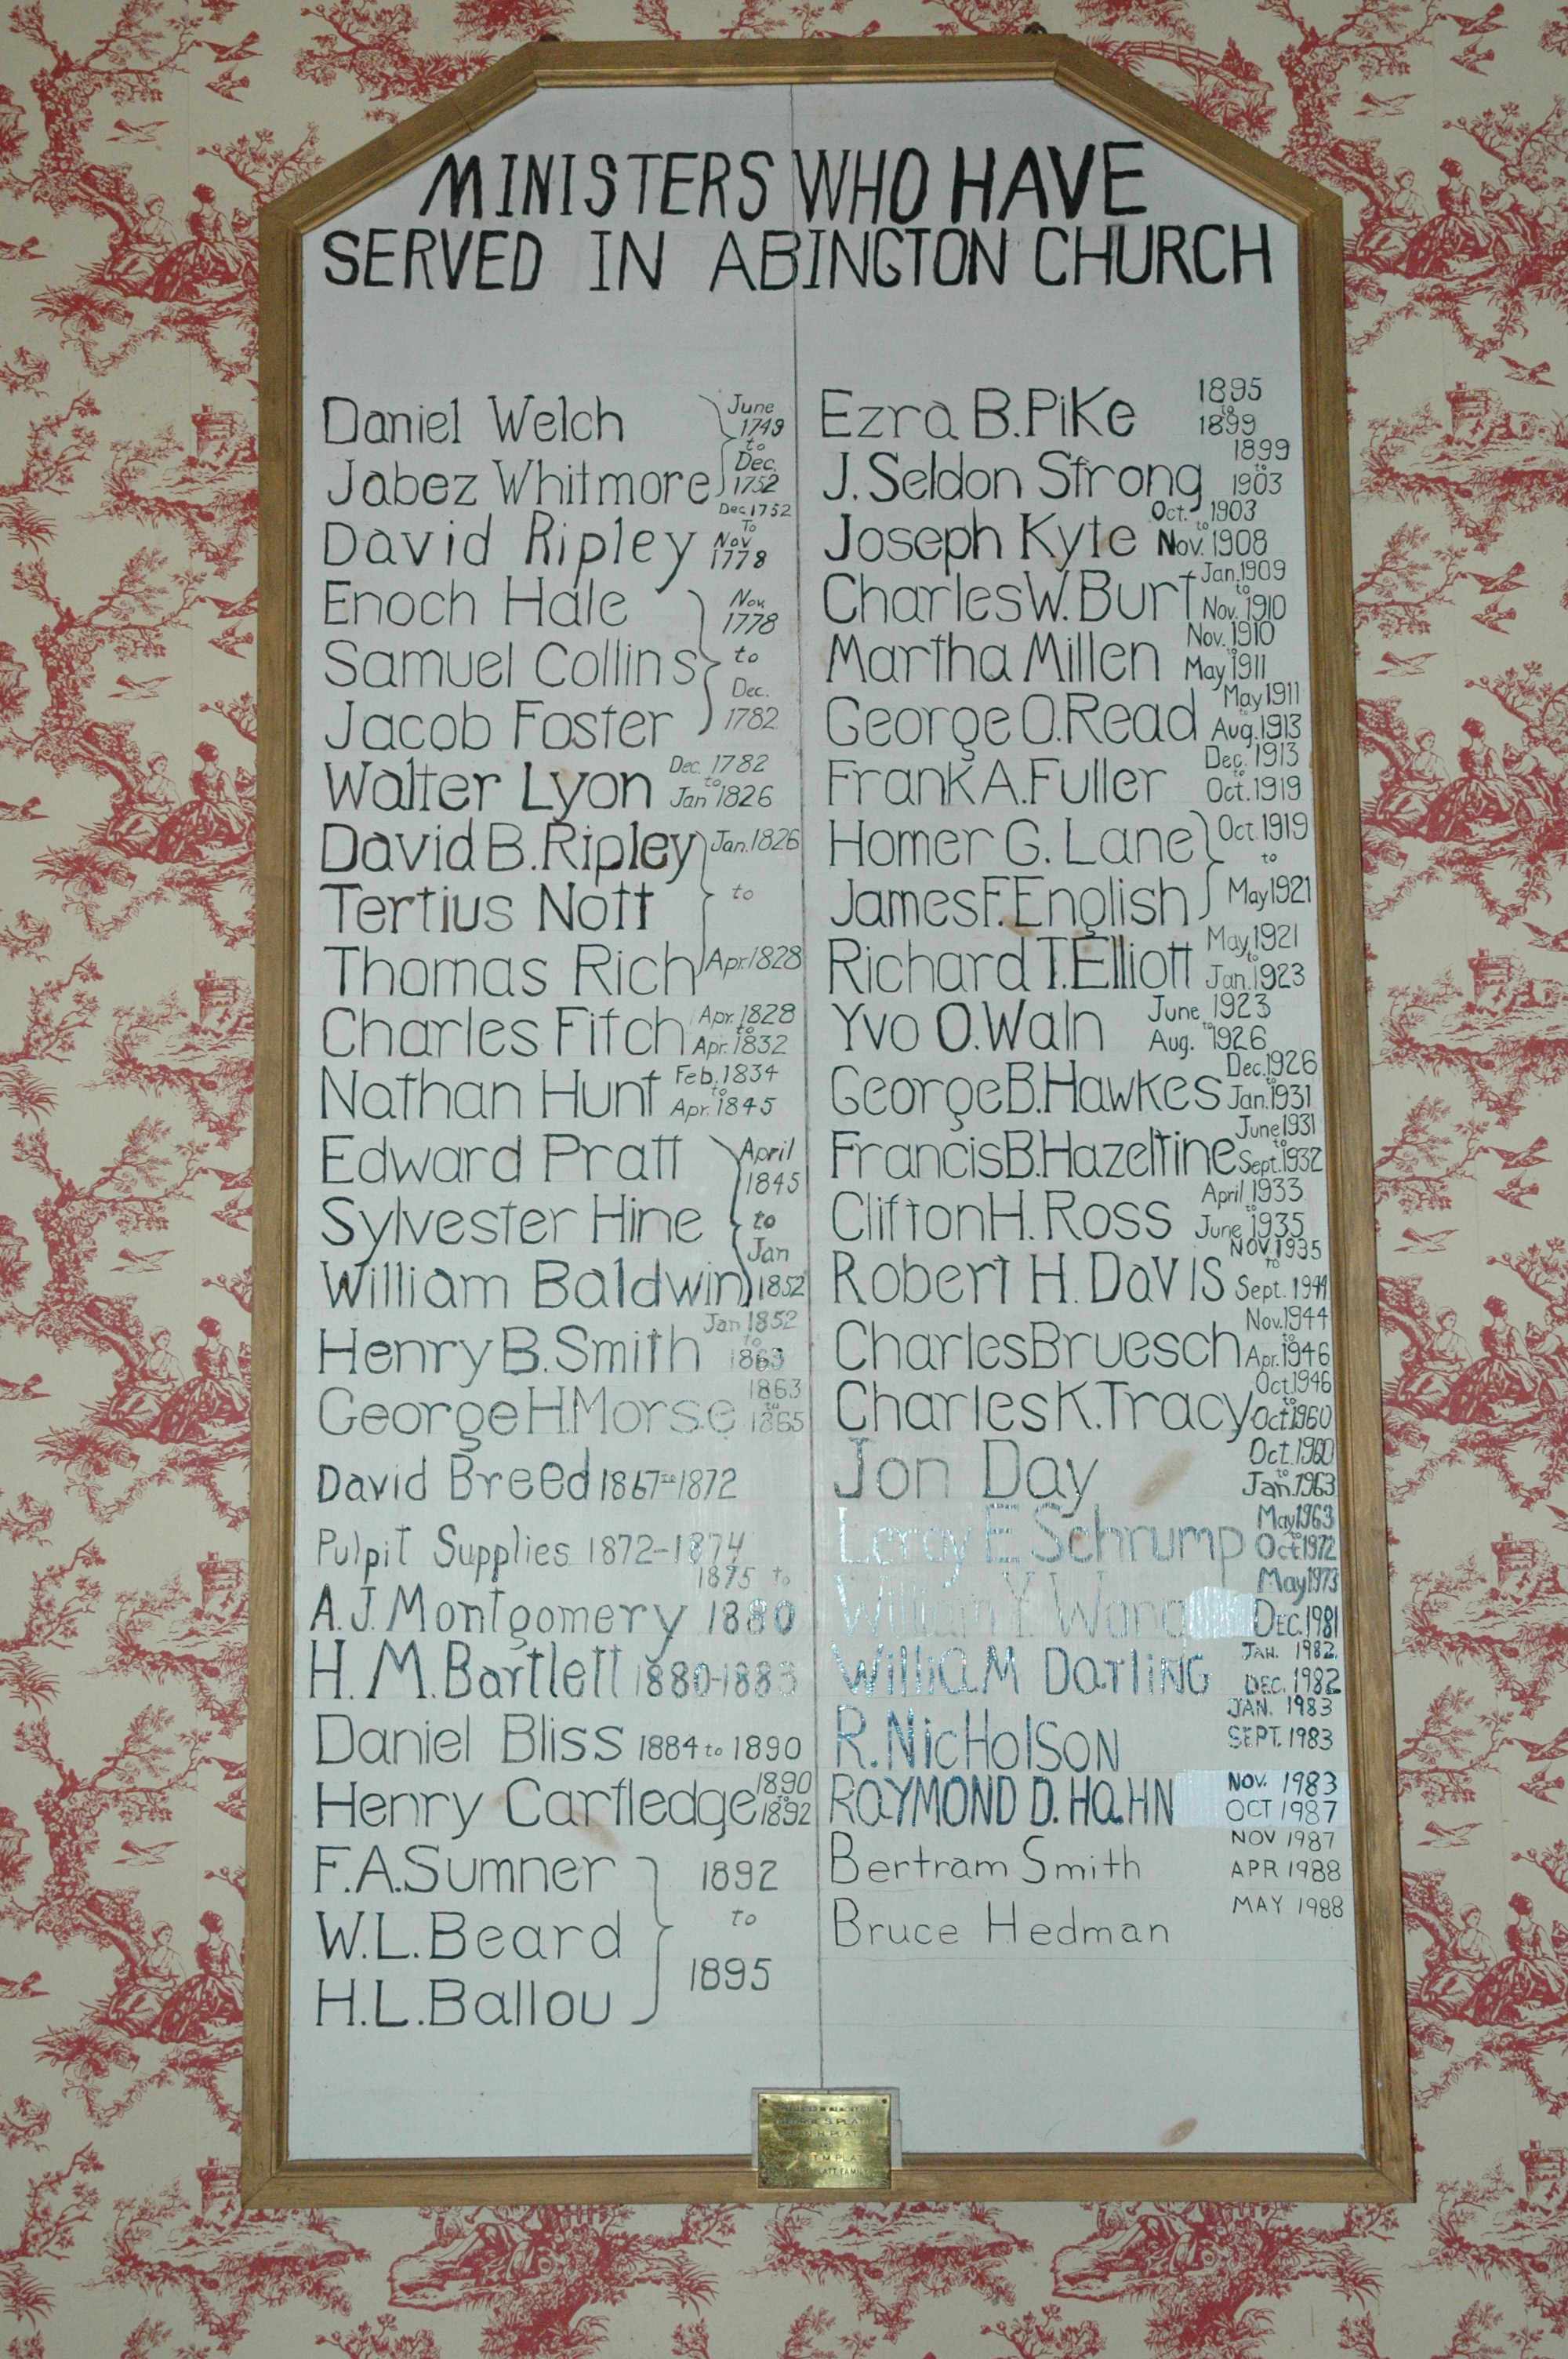 MINISTERS WHO HAVE
SERVED IN ABINGTON CHURCH
Daniel Welch
Jabez Whitmore
June
1749
to
Dec.
1752
David Ripley Dec. 1752
To
Nov
1778
Enoch Hale
Samuel Collins
Jacob Foster
Nov.
1778
to
Dec.
1782
Walter Lyon Dec. 1782
to
Jan 1826
David B. Ripley
Tertius Nott
Thomas Rich
Jan. 1826
to
Apr. 1828
Charles Fitch Apr. 1828
to
Apr. 1832
Nathan Hunt Feb. 1834
to
Apr. 1845
Edward Pratt
Sylvester Hine
William Baldwin
April
1845
to
Jan
1852
Henry B. Smith Jan 1852
to
1863
George H. Morse 1863
to
1865
David Breed 1867 to 1872
Pulpit Supplies 1872-1874
A.J. Montgomery 1875 to
1880
H. M. Bartlett 1880-1883
Daniel Bliss 1884 to 1890
Henry Cartledge 1890
to
1892
F.A. Sumner
W.L. Beard
H.L. Ballou
1892
to
1895
Ezra B. Pike 1895
to
1899
J. Seldon Strong 1899
to
1903
Joseph Kyte Oct. 1903
to
Nov. 1908
Charles W. Burt Jan. 1909
to
Nov. 1910
Martha Millen Nov. 1910
to
May 1911
George O. Read May 1911
to
Aug. 1913
Frank A. Fuller Dec. 1913
to
Oct. 1919
Homer G. Lane
James F. English
Oct. 1919
to
May 1921
Richard T. Elliott May 1921
to
Jan. 1923
Yvo O. Waln June 1923
to
Aug. 1926
George B. Hawkes Dec. 1926
to
Jan. 1931
Francis B. Hazeltine June 1931
to
Sept. 1932
Clifton H. Ross April 1933
to
June 1935
Robert H. Davis NOV. 1935
to
Sept. 1944
Charles Bruesch Nov. 1944
to
Apr. 1946
Charles K. Tracy Oct. 1946
to
Oct. 1960
Jon Day Oct. 1960
to
Jan. 1963
Leroy E Schrump May 1963
to
Oct. 1972
William Y. Wang May 1973
DEC. 1981
WilliaM DarliNG JAN. 1982.
DEC. 1982
R. NicHolSON JAN. 1983
SEPT. 1983
RaYMOND D. HaHN NOV. 1983
OCT 1987
Bertram Smith NOV 1987
APR 1988
Bruce Hedman MAY 1988